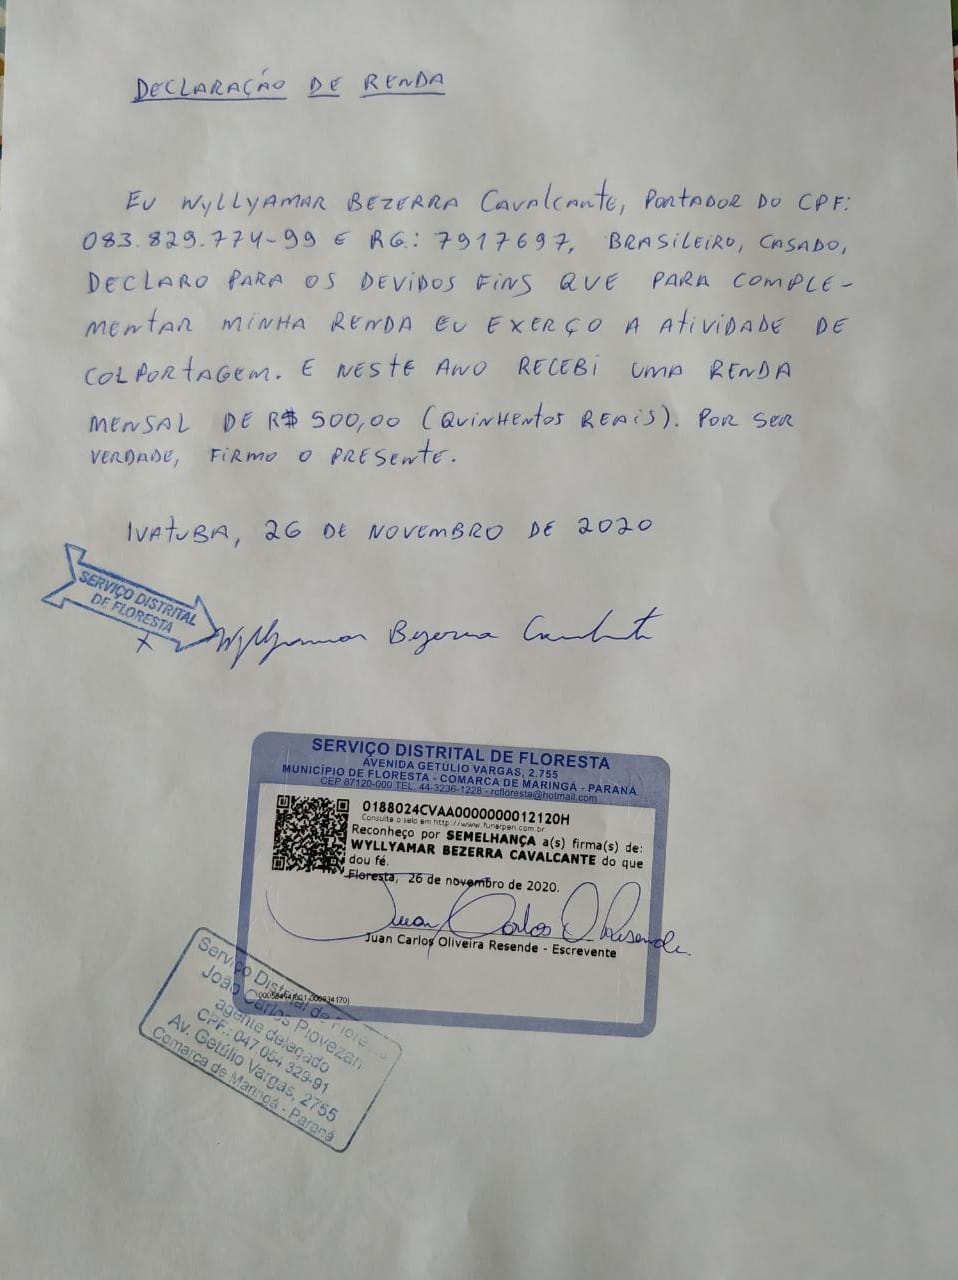 DECLARAÇÃO DE RENDA
EU WYLLYAMAR BEZERRA CAVALCANTE, PORTADOR DO CPF:
083.829.774-99 E RG.: 7917697, BRASILEIRO, CASADO,
DECLARO PARA OS DEVIDOS FINS QUE PARA COMPLE-
MENTAR MINHA RENDA EU EXERÇO A ATIVIDADE DE
COLPORTAGEM. E NESTE ANO RECEBI UMA RENDA
MENSAL DE R$ 500,00 (QUINHENTOS REAIS). POR SER
VERDADE, FIRMO O PRESENTE.
IVATUBA, 26 DE NOVEMBRO DE 2020
SERVIÇO DISTRITAL
DE FLORESTA
x Wyllyamar Bezerra Cavalcante
SERVIÇO DISTRITAL DE FLORESTA
AVENIDA GETÚLIO VARGAS, 2.755
MUNICÍPIO DE FLORESTA - COMARCA DE MARINGÁ - PARANÁ
CEP 87120-000 TEL. 44-3236-1228 - rcfloresta@hotmail.com
0188024CVAA0000000012120H
Consulte o selo em http://www.funarpen.com.br
Reconheço por SEMELHANÇA a(s) firma(s) de:
WYLLYAMAR BEZERRA CAVALCANTE do que
dou fé.
Floresta, 26 de novembro de 2020.
Juan Carlos O. Resende
Juan Carlos Oliveira Resende - Escrevente
Serviço Distrital de Flore
João Carlos Piovezan
agente delegado
CPF.: 047.054.329-91
Av. Getúlio Vargas, 2755
Comarca de Maringá - Paraná